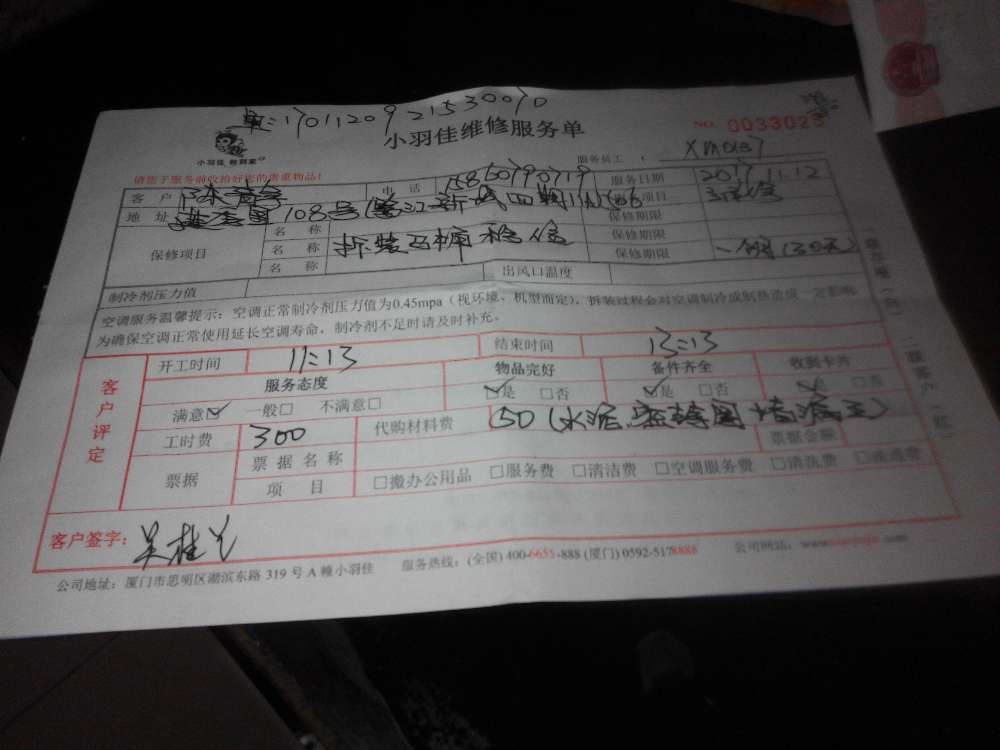 单:1701120921530070
小羽佳维修服务单
NO. 0033023
小羽佳 粉到家
服务员工: XM0137
请您于服务前收拾好您的贵重物品!
客户 电话 15860790719 服务日期 2017.11.12
地址 108号 项目
保修项目 名称 保修期限
名称 拆装马桶 检修 保修期限
名称 保修期限 一个月(30天)
制冷剂压力值 出风口温度
空调服务温馨提示:空调正常制冷剂压力值为0.45mpa(视环境、机型而定),拆装过程会对空调制冷或制热造成一定影响
为确保空调正常使用延长空调寿命,制冷剂不足时请及时补充。
客户评定
开工时间 11:13 结束时间 13:13
服务态度 物品完好 备件齐全 收到卡片
满意☑ 一般□ 不满意□ ☑是 □否 ☑是 □否 ☑是 □否
工时费 300 代购材料费 50(水泥、密封圈 堵漏王) 票据金额
票据 票据名称
项目 □搬办公用品 □服务费 □清洁费 □空调服务费 □清洗费
客户签字: 吴桂兰
公司地址:厦门市思明区湖滨东路 319 号 A 幢小羽佳 服务热线:(全国) 400-6655-888 (厦门) 0592-5178888 公司网站: